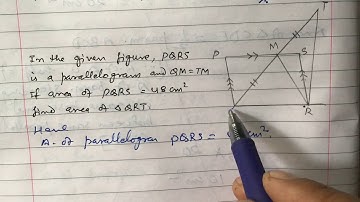 In the given figure, PQRS
is a parallelogram and QM=TM
If area of PQRS = 48 cm²
find area of ΔQRT.
Have
A. of parallelogram PQRS = cm².
T
M
S
P
R